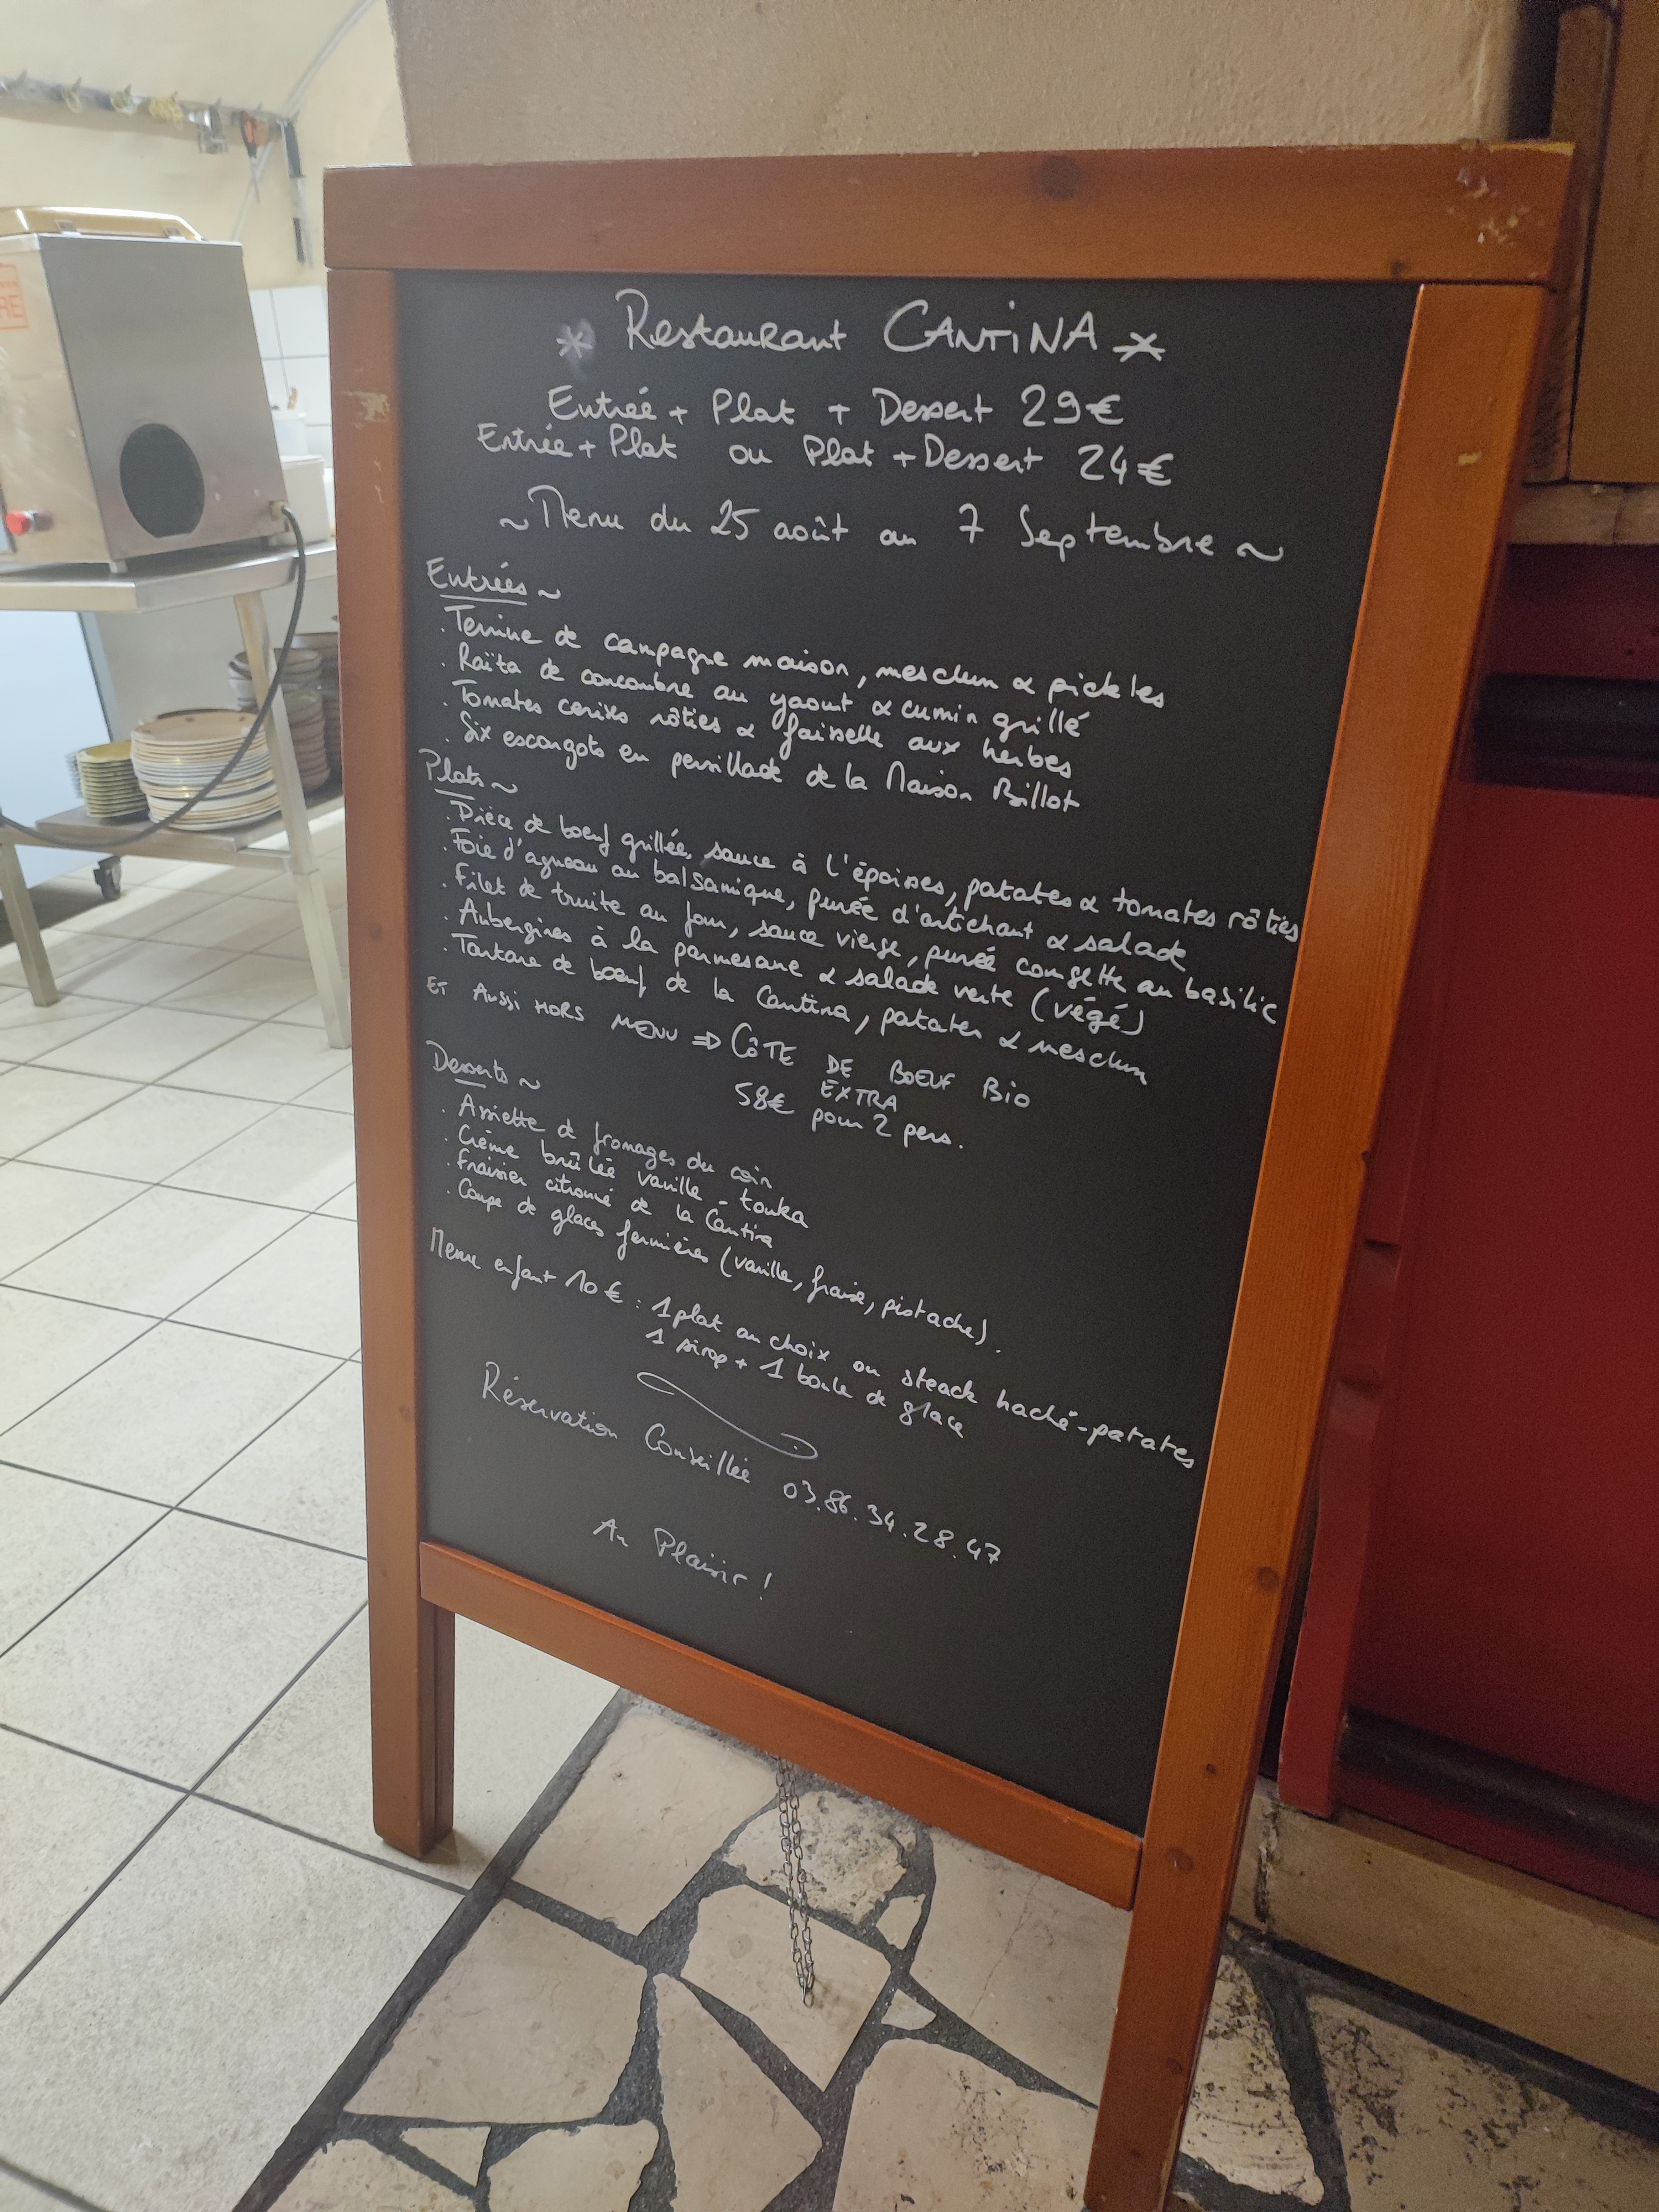 * Restaurant CANTiNA *
Entrée + Plat + Dessert 29€
Entrée + Plat ou Plat + Dessert 24€
~ Menu du 25 août au 7 Septembre ~
Entrées ~
. Terrine de campagne maison, mesclun & pickles
. Raïta de concombre au yaourt & cumin grillé
. Tomates cerises rôties & faisselle aux herbes
. Six escargots en persillade de la Maison Billot
Plats ~
. Pièce de boeuf grillée, sauce à l'époisses, patates & tomates rôties
. Foie d'agneau au balsamique, purée d'artichaut & salade
. Filet de truite au four, sauce vierge, purée courgette au basilic
. Aubergines à la parmesane & salade verte (végé)
. Tartare de boeuf de la Cantina, patates & mesclun
ET AUSSI HORS MENU => CÔTE DE BOEUF BiO
EXTRA
58€ pour 2 pers.
Desserts ~
. Assiette de fromages du coin
. Crème brûlée vanille - tonka
. Fraisier citronné de la Cantina
. Coupe de glaces fermières (vanille, fraise, pistache).
Menu enfant 10€ : 1 plat au choix ou steack haché-patates
1 sirop + 1 boule de glace
Réservation Conseillée 03.86.34.28.47
Au Plaisir !
RE